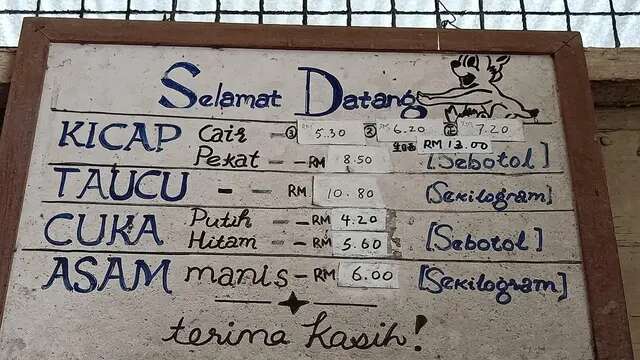 Selamat Datang
KICAP Cair - ① RM 5.30 ② RM 6.20 正 RM 7.20
RM 13.00
Pekat - - RM 8.50 [Sebotol]
TAUCU - - RM 10.80 [Sekilogram]
CUKA Putih - - RM 4.20
Hitam - - RM 5.60 [Sebotol]
ASAM manis - RM 6.00 [Sekilogram]
terima kasih!